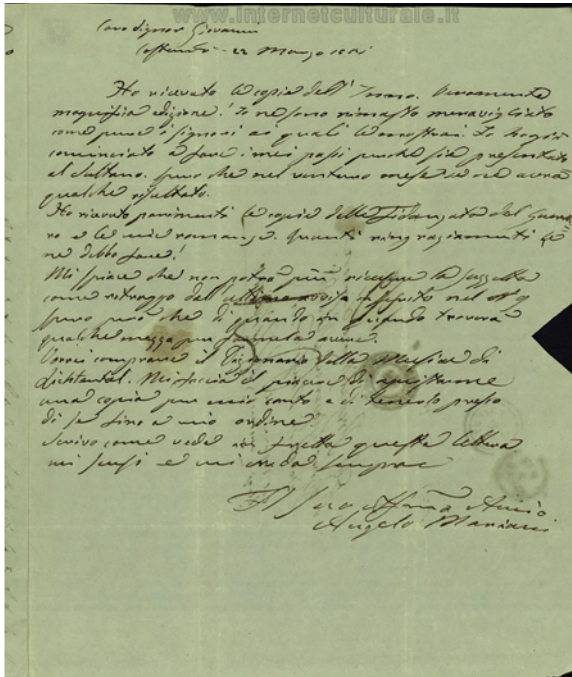 www.internetculturale.it
Caro Signor Giovanni
22 Marzo 1851
Ho ricevuto le copie dell'Inno. Veramente
magnifica edizione! Io ne sono rimasto meravigliato
come pure i signori ai quali le mostrai. Io
cominciato a fare i miei passi perché sia presentato
al Sultano. Spero che nel venturo mese se ne avrà
qualche risultato.
Ho ricevuto parimenti le copie della Fidanzata del Guerrie
ro e le mie romanze. Quanti ringraziamenti Le
ne debbo fare!
Mi spiace che non potrò più ricevere la Gazzetta
come ritraggo dal nel
Spero però che di quando in quando troverà
qualche mezzo per farmela avere.
Vorrei comprare il Dizionario della Musica di
Lichtental. Mi faccia il piacere di
una copia per mio conto e di tenerlo presso
di se fino a mio ordine.
Scrivo come vede in fretta questa lettera
mi scusi e mi creda sempre
Il Suo Affmo Amico
Angelo Mariani